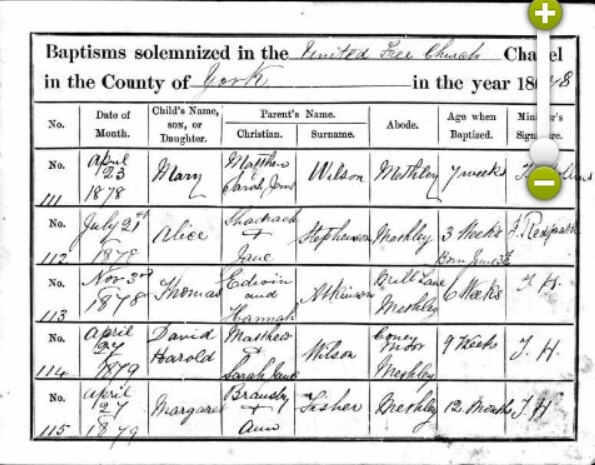 Baptisms solemnized in the United Free Church Chapel
in the County of York in the year 1878
No. Date of Month. Child's Name, son, or Daughter. Parent's Name. Christian. Surname. Abode. Age when Baptized.
No. 111 April 23 1878 Mary Matthew Sarah Jane Wilson Methley 7 weeks
No. 112 July 21st 1878 Alice Shadrach + Jane Stephenson Methley 3 Weeks Born June J. Redpath
No. 113 Nov 3rd 1878 Thomas Edwin and Hannah Atkinson Mill Lane Methley 6 Weeks T. H.
No. 114 April 27 1879 David Harold Matthew & Sarah Jane Wilson Coney Moor Methley 9 Weeks T. H.
No. 115 April 27 1879 Margaret Bransby + Ann Fisher Methley 12 Months T. H